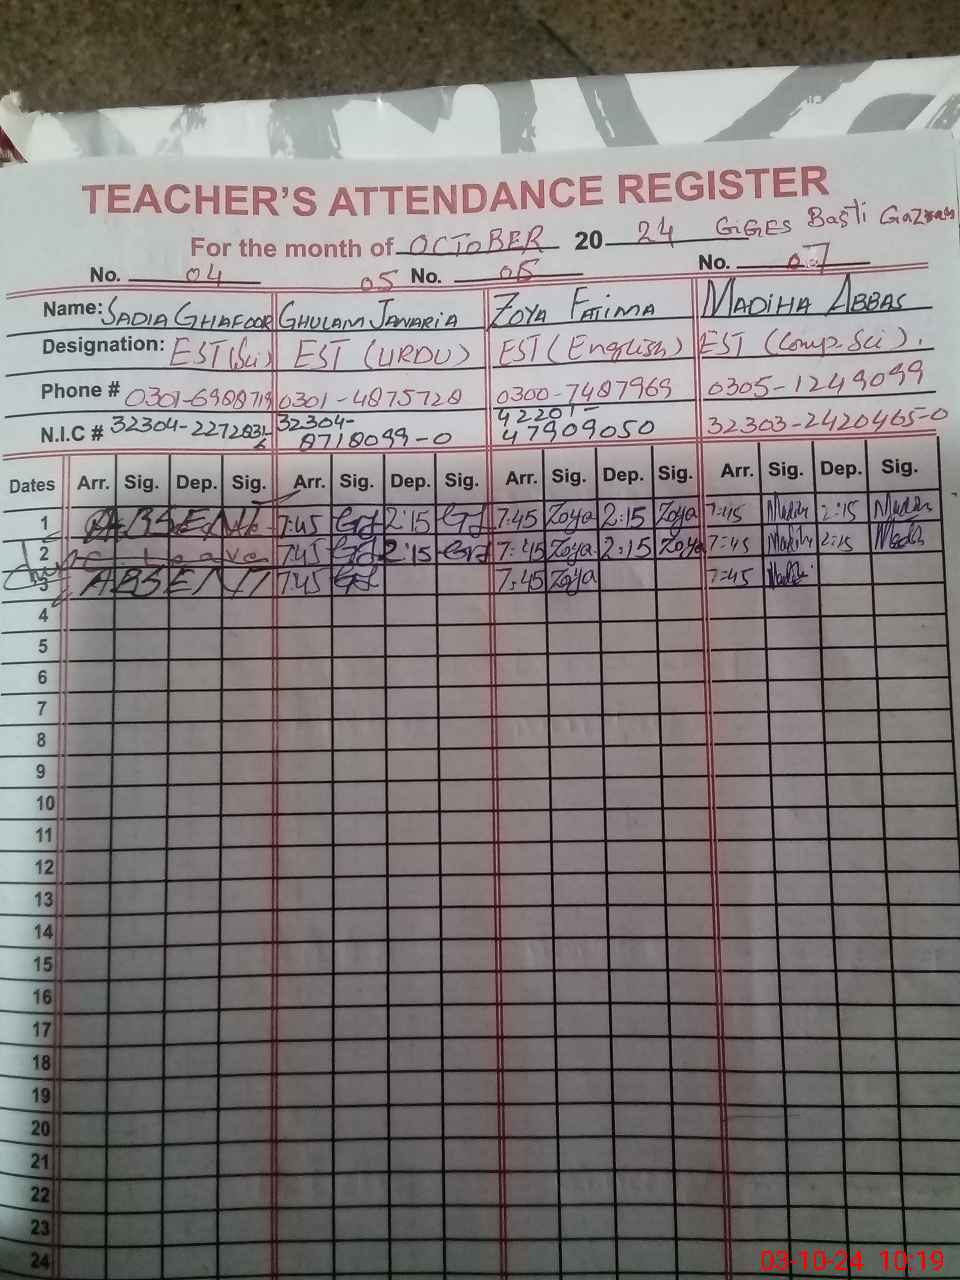 TEACHER'S ATTENDANCE REGISTER
For the month of OCTOBER 20 24 GGES Basti
No. 04 05 No. 06 No. 07
Name: SADIA GHAFOOR GHULAM JANARIA ZOYA FATIMA MADIHA ABBAS
Designation: EST (Sci) EST (URDU) EST (English) EST (Comp.Sci).
Phone # 0301-4875728 0300-7487969 0305-1249099
N.I.C # 32304- 42201- 32303-2420465-0
8718099-0 47909050
Dates Arr. Sig. Dep. Sig. Arr. Sig. Dep. Sig. Arr. Sig. Dep. Sig. Arr. Sig. Dep. Sig.
1 ABSENT 7:45 GJ 2:15 GJ 7:45 Zoya 2:15 Zoya 7:45 2:15
2 leave 7:45 GJ 2:15 GJ 7:45 Zoya 2:15 Zoya 7:45 2:15
3 ABSENT 7:45 GJ 7:45 Zoya 7:45
4
5
6
7
8
9
10
11
12
13
14
15
16
17
18
19
20
21
22
23
24
03-10-24 10:19